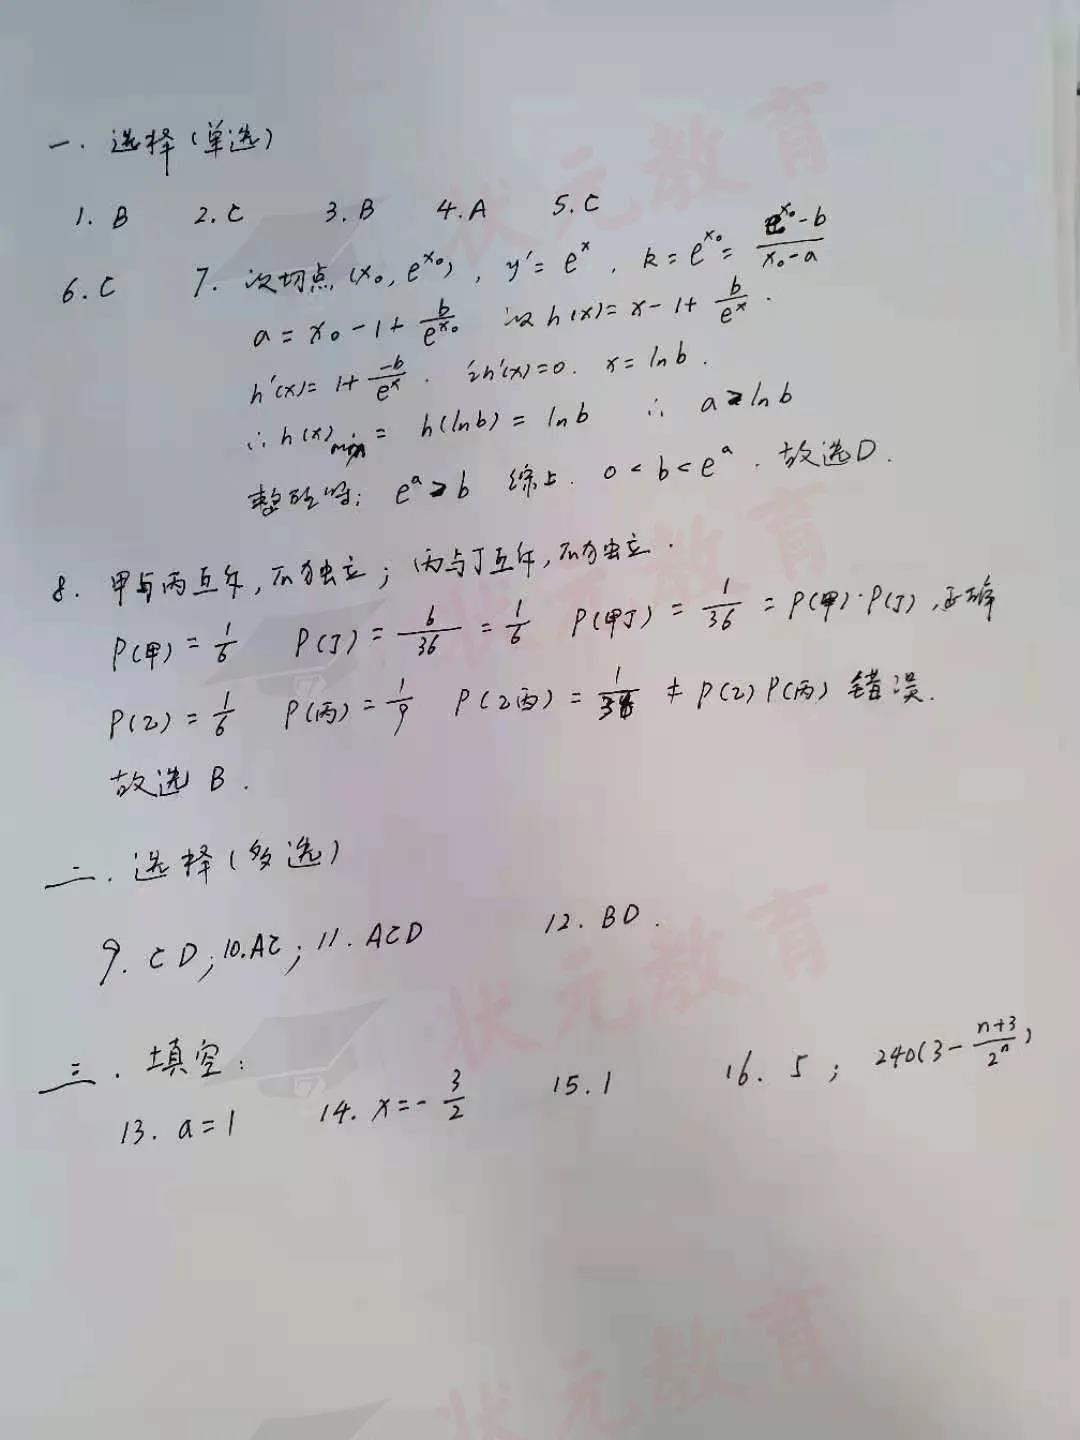 一. 选择(单选)
1. B 2. C 3. B 4. A 5. C
6. C 7. 设切点 (x₀, e^{x₀}), y' = e^x. k = e^{x₀} = \frac{e^{x₀}-b}{x₀-a}
a = x₀ - 1 + \frac{b}{e^{x₀}} 设 h(x) = x - 1 + \frac{b}{e^x}.
h'(x) = 1 + \frac{-b}{e^x}. 令h'(x)=0. x = lnb.
∴ h(x)min = h(lnb) = lnb ∴ a > lnb
整理得: e^a > b 综上. 0 < b < e^a. 故选D.
8. 甲与丙互斥, 不为独立; 丙与丁互斥, 不为独立.
P(甲) = \frac{1}{6} P(丁) = \frac{6}{36} = \frac{1}{6} P(甲丁) = \frac{1}{36} = P(甲)·P(丁), 正确
P(乙) = \frac{1}{6} P(丙) = \frac{1}{9} P(乙丙) = \frac{1}{36} ≠ P(乙)P(丙) 错误.
故选 B.
二. 选择(多选)
9. CD; 10. AC; 11. ACD 12. BD.
三. 填空:
13. a=1 14. x=-\frac{3}{2} 15. 1 16. 5; 240(3-\frac{n+3}{2^n})
状元教育
状元教育
状元教育
状元教育